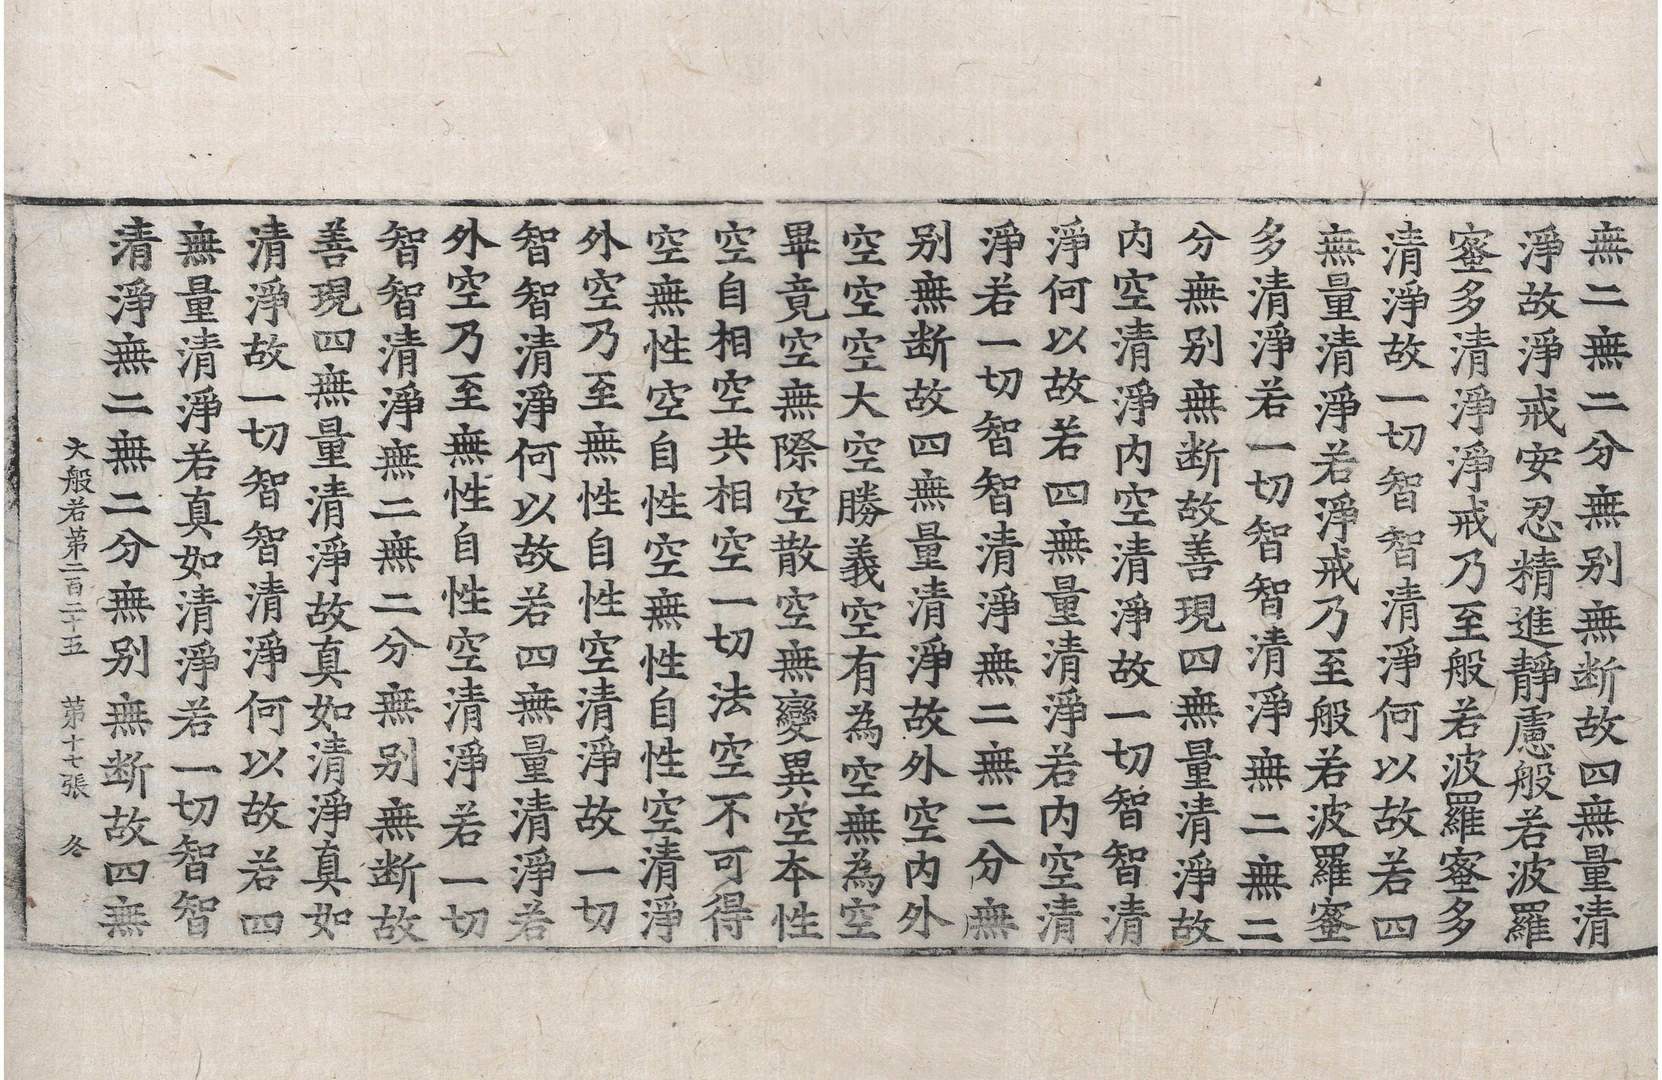 無二無二分無別無断故四無量清
淨故淨戒安忍精進靜慮般若波羅
蜜多清淨淨戒乃至般若波羅蜜多
清淨故一切智智清淨何以故若四
無量清淨若淨戒乃至般若波羅蜜
多清淨若一切智智清淨無二無二
分無別無断故善現四無量清淨故
内空清淨内空清淨故一切智智清
淨何以故若四無量清淨若内空清
淨若一切智智清淨無二無二分無
別無断故四無量清淨故外空内外
空空空大空勝義空有為空無為空
畢竟空無際空散空無變異空本性
空自相空共相空一切法空不可得
空無性空自性空無性自性空清淨
外空乃至無性自性空清淨故一切
智智清淨何以故若四無量清淨若
外空乃至無性自性空清淨若一切
智智清淨無二無二分無別無断故
善現四無量清淨故真如清淨真如
清淨故一切智智清淨何以故若四
無量清淨若真如清淨若一切智智
清淨無二無二分無別無断故四無
大般若第二百二十五　第十七張　冬